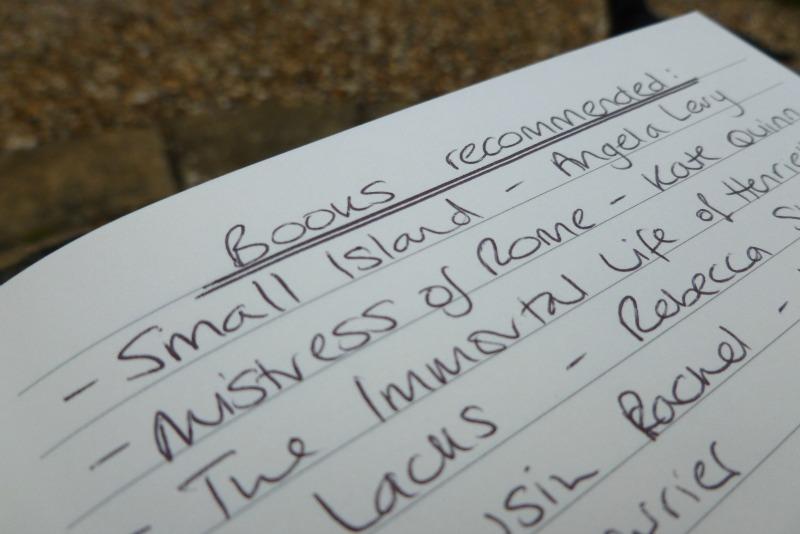 Books recommended:
- Small Island - Angela Levy
- Mistress of Rome - Kate Quinn
- The Immortal Life of
Lacks - Rebecca
Rachel -